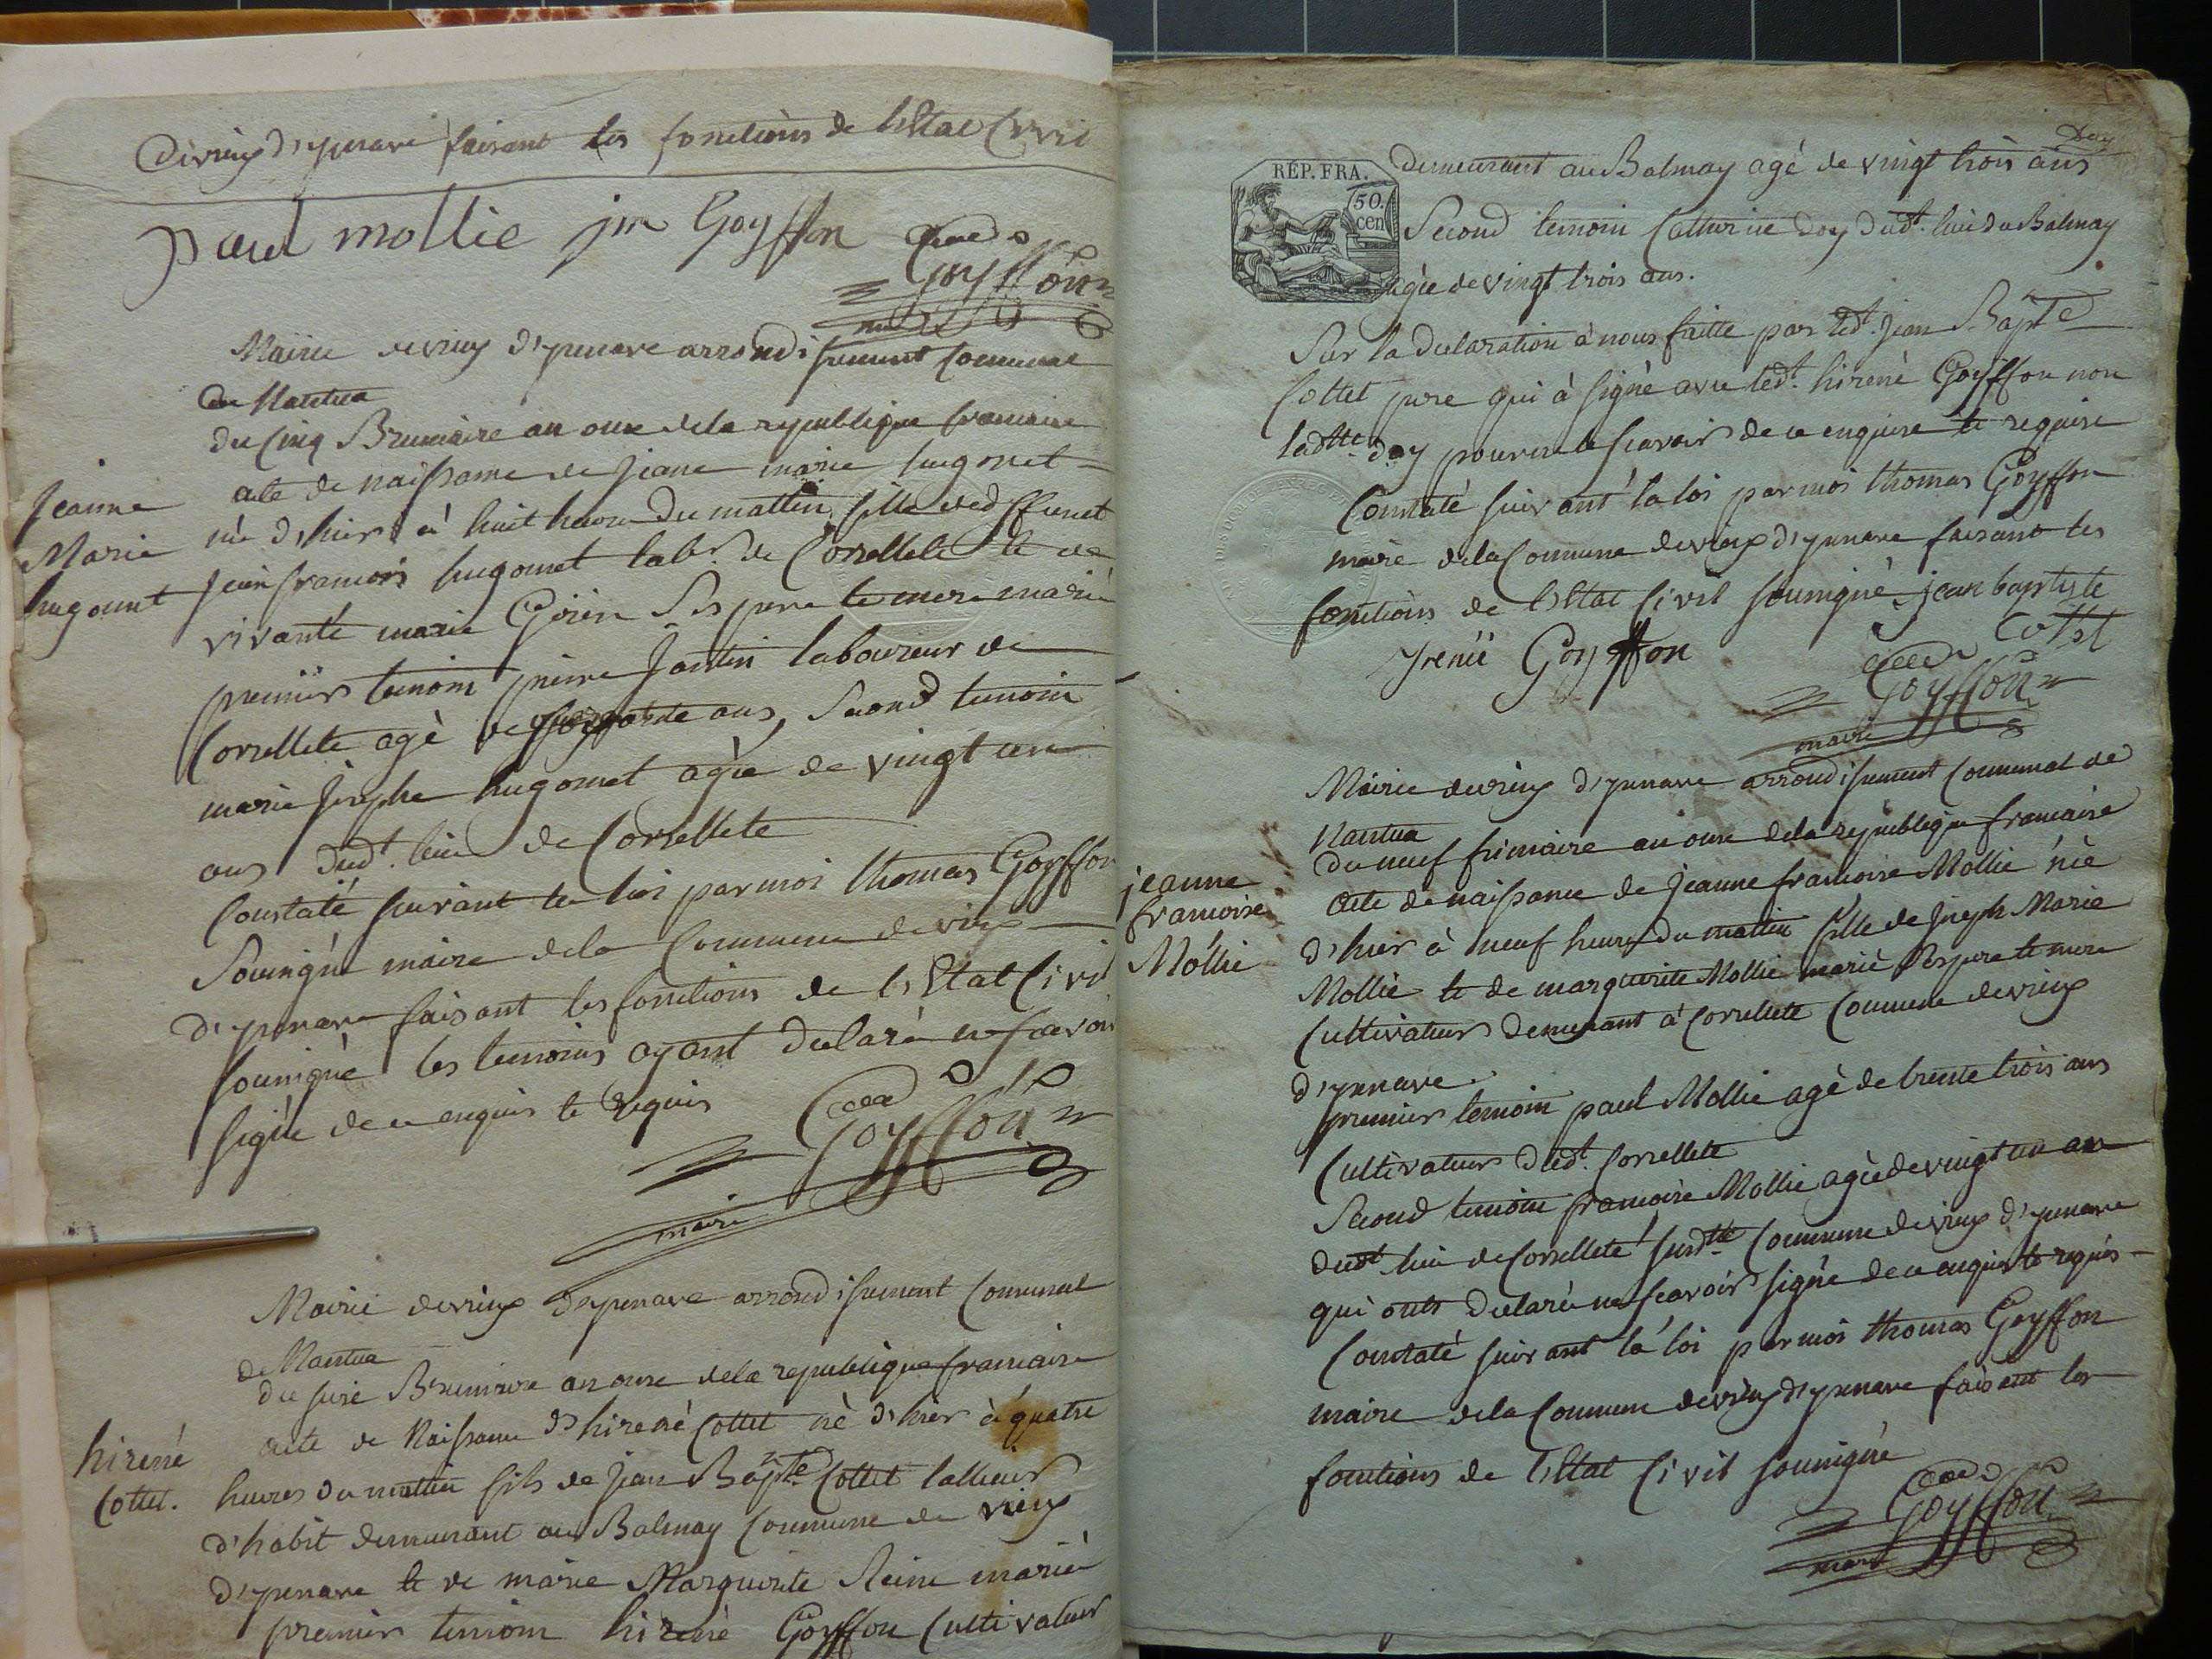 devieu d'ysenave faisant les fonctions de l'Etat Civil
paul mollie jm Goyffon
Goyffon
maire
Mairie devieux d'ysenave arrondisement Communal
de Nantua
du Cinq Brumaire an onze dela republique francaise
acte de naissance de jeane marie hugonet
née d'hier à huit heure du mattin fille de deffunct
jean francois hugonet lab.r de Corcellete te de
vivante marie Goiffon ses pere te mere marié
premier temoin pierre jantin laboureur de
Corcellete agé de ans, Second temoin
marie josephe hugonet agée de vingt un
ans dud.t lieu de Corcellete
Constaté suivant la loi par moi thomas Goyffon
Sousigné maire dela Commune devieux
d'ysenave faisant les fonctions de l'Etat Civil
sousigné les temoins ayant declaré ne scavoir
signer de ce enquis te requis
Goyffon
maire
Jeanne
Marie
hugonnet
Mairie devieux d'ysenave arrondisement Communal
de Nantua
du seize Brumaire an onze dela republique francaise
acte de Naissance d'hirené Cottet né d'hier à quatre
heures du mattin fils de jean Bapte Cottet tallieur
d'habit demeurant au Balmay Commune de vieux
d'ysenave te de marie Marguerite Reine marié
premier temoin hirené Goyffon Cultivateur
hirené
Cottet.
REP. FRA.
50.
cen
demeurant au Balmay agé de vingt trois ans
Second temoin Catherine doy dud.t lieu du Balmay
agée de vingt trois ans.
Sur la declaration à nous faitte par led.t jean Bapte
Cottet pere qui à signé avec led.t hirené Goyffon non
ladtte doy pour ne le scavoir de ce enquise te requise
Constaté suivant la loi par moi thomas Goyffon
maire dela Commune devieux d'ysenave faisant les
fonctions de l'Etat Civil sousigné jean baptiste
Cottet
yrenée Goyffon
Goyffon
maire
Mairie devieux d'ysenave arrondisement Communal de
Nantua
du neuf frimaire an onze dela republique francaise
acte de naissance de jeanne francoise Mollie née
d'hier à neuf heures du mattin fille de joseph Marie
Mollie te de marguerite Mollie marié ses pere te mere
Cultivateurs demeurant à Corcellete Commune devieux
d'ysenave.
premier temoin paul Mollie agé de trente trois ans
Cultivateur dud.t Corcellete
Second temoin francoise Mollie agée de vingt un ans
dudt lieu de Corcellete susdtte Commune devieux d'ysenave
qui onts declaré ne scavoir signer de ce enquis te requis
Constaté suivant la loi par moi thomas Goyffon
maire dela Commune devieux d'ysenave faisant les
fonctions de l'Etat Civil sousigné
Goyffon
maire
jeanne
francoise
Mollie